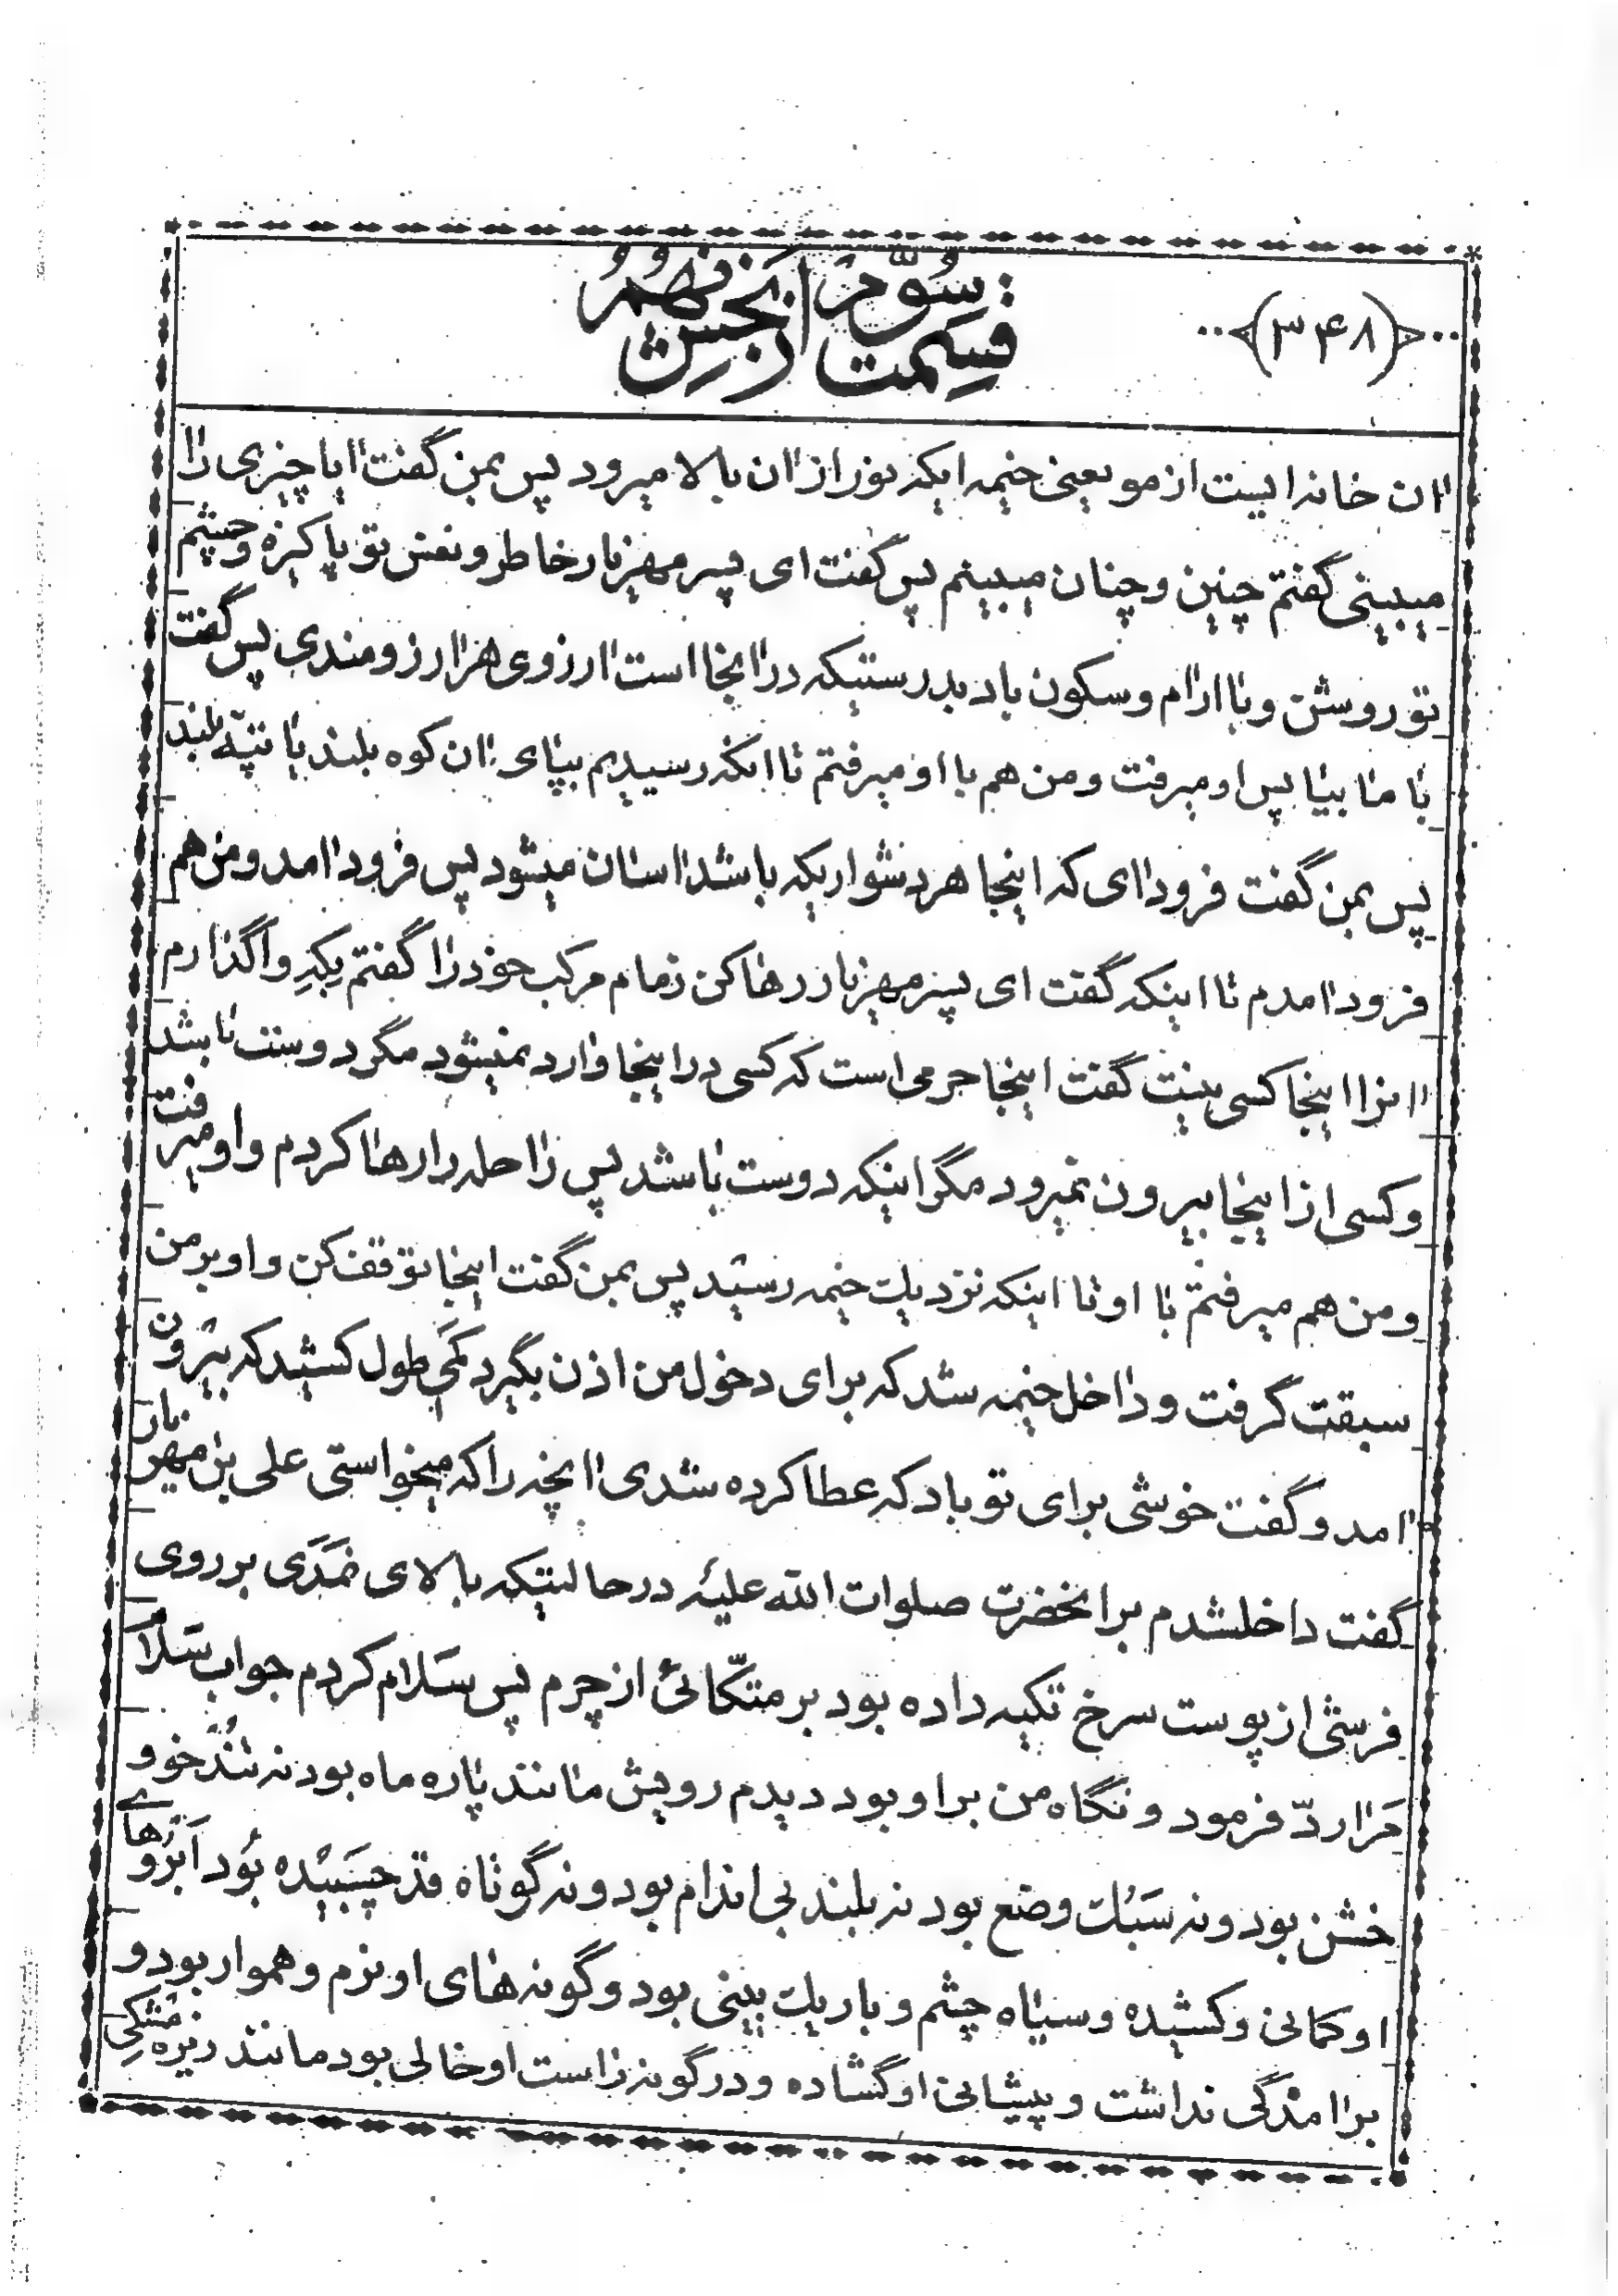 (۳۴۸)
قسمت سوّم از بخش نهم
آن خانه ایست از مو یعنی خیمه ایکه نور از آن بالا میرود پس بمن گفت آیا چیزی را
میبینی گفتم چنین و چنان میبینم پس گفت ای پسر مهزیار خاطر و نفس تو پاکیزه و چشم
تو روشن و با آرام و سکون باد بدرستیکه در آنجا است آرزوی هر آرزومندی پس گفت
با ما بیا پس او میرفت و من هم با او میرفتم تا آنکه رسیدیم بپای آن کوه بلند یا تپّه بلند
پس بمن گفت فرود آی که اینجا هر دشواریکه باشد آسان میشود پس فرود آمد و من هم
فرود آمدم تا اینکه گفت ای پسر مهزیار رها کن زمام مرکب خود را گفتم بکه واگذارم
آنرا اینجا کسی نیست گفت اینجا حرمی است که کسی در اینجا وارد نمیشود مگر دوست باشد
و کسی از اینجا بیرون نمیرود مگر اینکه دوست باشد پس راحله را رها کردم و او میرفت
و من هم میرفتم با او تا اینکه نزدیک خیمه رسید پس بمن گفت اینجا توقف کن و او بر من
سبقت گرفت و داخل خیمه شد که برای دخول من اذن بگیرد کمی طول کشید که بیرون
آمد و گفت خوشی برای تو باد که عطا کرده شدی آنچه را که میخواستی علی بن مهزیار
گفت داخلشدم بر آنحضرت صلوات الله علیه در حالتیکه بالای نمدی بر روی
فرشی از پوست سرخ تکیه داده بود بر متکّائی از چرم پس سلام کردم جواب سلام
مرا ردّ فرمود و نگاه من بر او بود دیدم رویش مانند پاره ماه بود نه تندخو و
خشن بود و نه سبک وضع بود نه بلند بی اندام بود و نه کوتاه قد چسبیده بود ابروهای
او کمانی و کشیده و سیاه چشم و باریک بینی بود و گونه های او نرم و هموار بود و
برآمدگی نداشت و پیشانی او گشاده و در گونه راست او خالی بود مانند ریزه مشکی